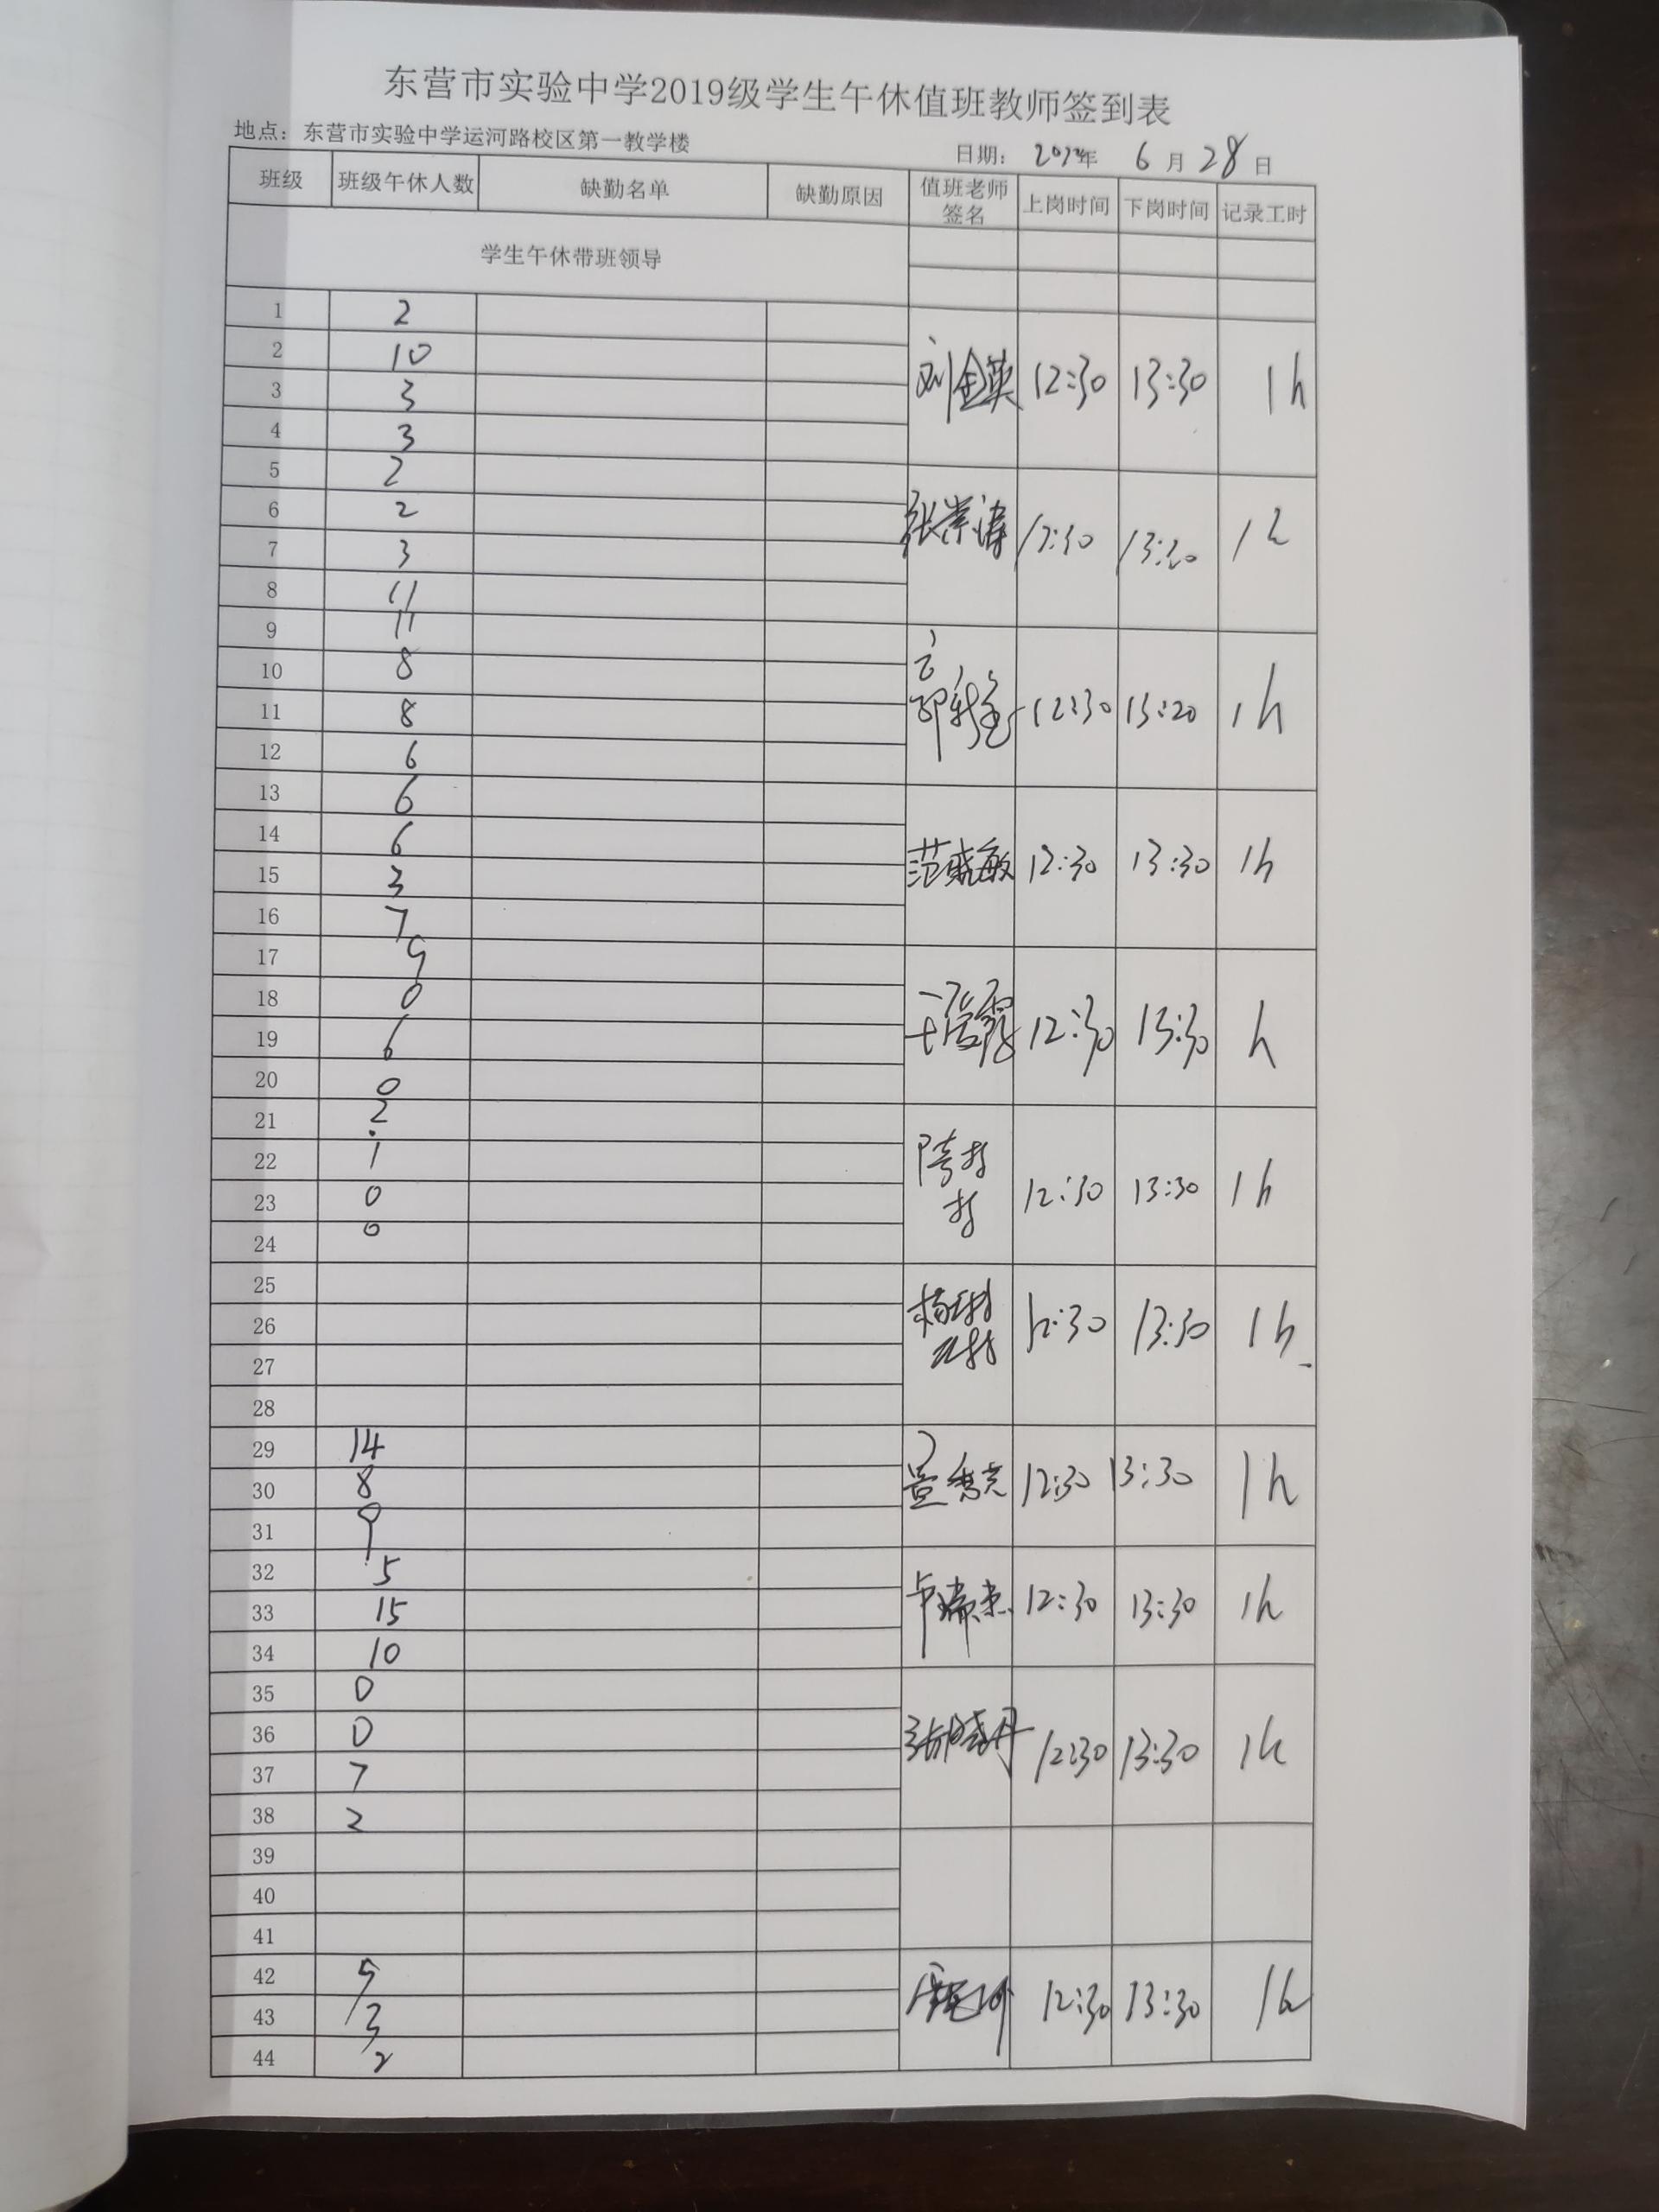 东营市实验中学2019级学生午休值班教师签到表
地点：东营市实验中学运河路校区第一教学楼
日期： 年 6 月 28 日
班级 班级午休人数 缺勤名单 缺勤原因 值班老师签名 上岗时间 下岗时间 记录工时
学生午休带班领导
1 2
2 10
3 3 刘金英 12:30 13:30 1h
4 3
5 2
6 2 张崇涛 12:30 13:30 1h
7 3
8 11
9 11
10 8
11 8 12:30 13:20 1h
12 6
13 6
14 6
15 3 范晓敏 12:30 13:30 1h
16 7
17 9
18 0
19 6 12:30 13:30 h
20 0
21 2
22 1
23 0 12:30 13:30 1h
24 0
25
26 12:30 13:30 1h
27
28
29 14
30 8 12:30 13:30 1h
31 9
32 5
33 15 12:30 13:30 1h
34 10
35 0
36 0 张晓丹 12:30 13:30 1h
37 7
38 2
39
40
41
42 5
43 3 12:30 13:30 1h
44 2